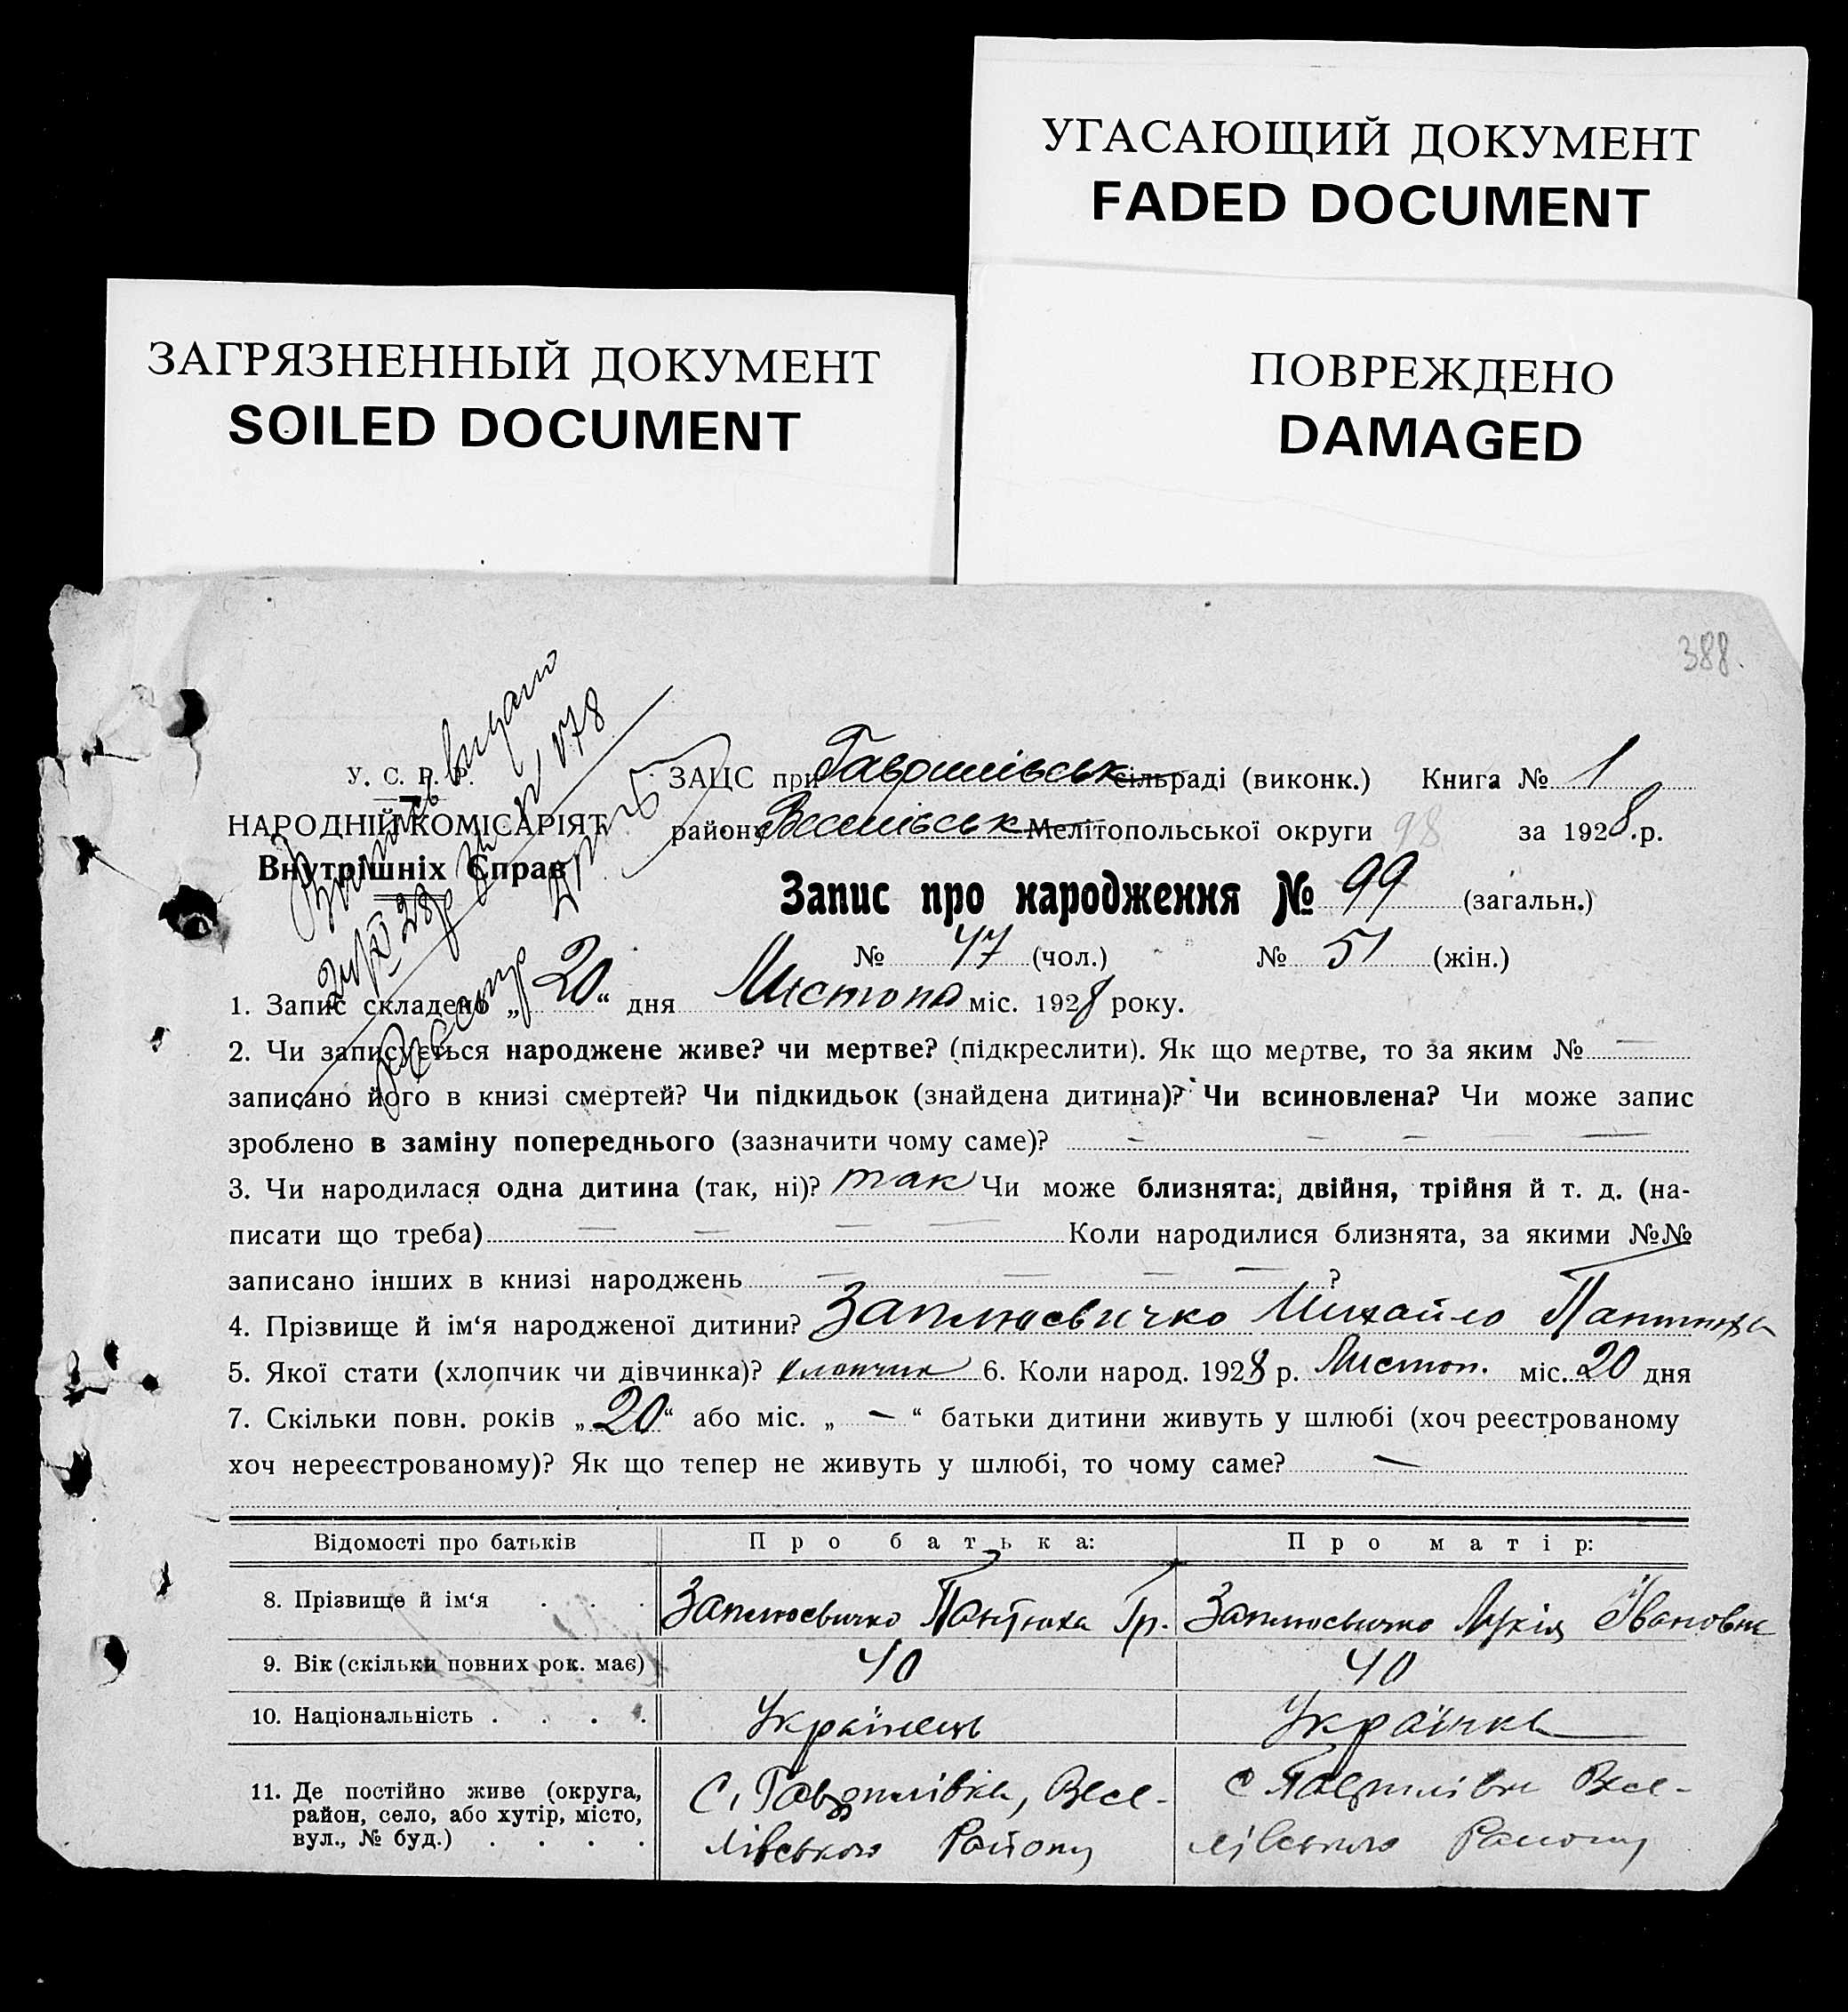 УГАСАЮЩИЙ ДОКУМЕНТ
FADED DOCUMENT
ЗАГРЯЗНЕННЫЙ ДОКУМЕНТ
SOILED DOCUMENT
ПОВРЕЖДЕНО
DAMAGED
388.
У. С. Р. Р.
НАРОДНІЙ КОМІСАРІЯТ
Внутрішніх Справ
видано
ЗАЦС при Гаврилівськ сільраді (виконк.) Книга № 1
району Веселівськ Мелітопольської округи 98 за 1928 .р.
Запис про народження № 99 (загальн.)
№ 47 (чол.) № 51 (жін.)
1. Запис складено „ 20 “ дня Листопа міс. 1928 року.
2. Чи записується народжене живе? чи мертве? (підкреслити). Як що мертве, то за яким № —
записано його в книзі смертей? Чи підкидьок (знайдена дитина)? Чи всиновлена? Чи може запис
зроблено в заміну попереднього (зазначити чому саме)? — — — — —
3. Чи народилася одна дитина (так, ні)? так Чи може близнята: двійня, трійня й т. д. (на-
писати що треба) — — — — Коли народилися близнята, за якими №№
записано інших в книзі народжень — — — — ?
4. Прізвище й ім‘я народженої дитини? Михайло
5. Якої стати (хлопчик чи дівчинка)? хлопчик 6. Коли народ. 1928 р. Листоп. міс. 20 дня
7. Скільки повн. років „ 20 “ або міс. „ — “ батьки дитини живуть у шлюбі (хоч реєстрованому
хоч нереєстрованому)? Як що тепер не живуть у шлюбі, то чому саме? —
Відомості про батьків Про батька: Про матір:
8. Прізвище й ім‘я . . . Гр. Івановна
9. Вік (скільки повних рок. має) 40 40
10. Національність . . . . Українець Українка
11. Де постійно живе (округа, район, село, або хутір, місто, вул., № буд.) . . . .
С. Гаврилівка, Весе-
лівського Району
С Гаврилівки Весе-
лівського Району